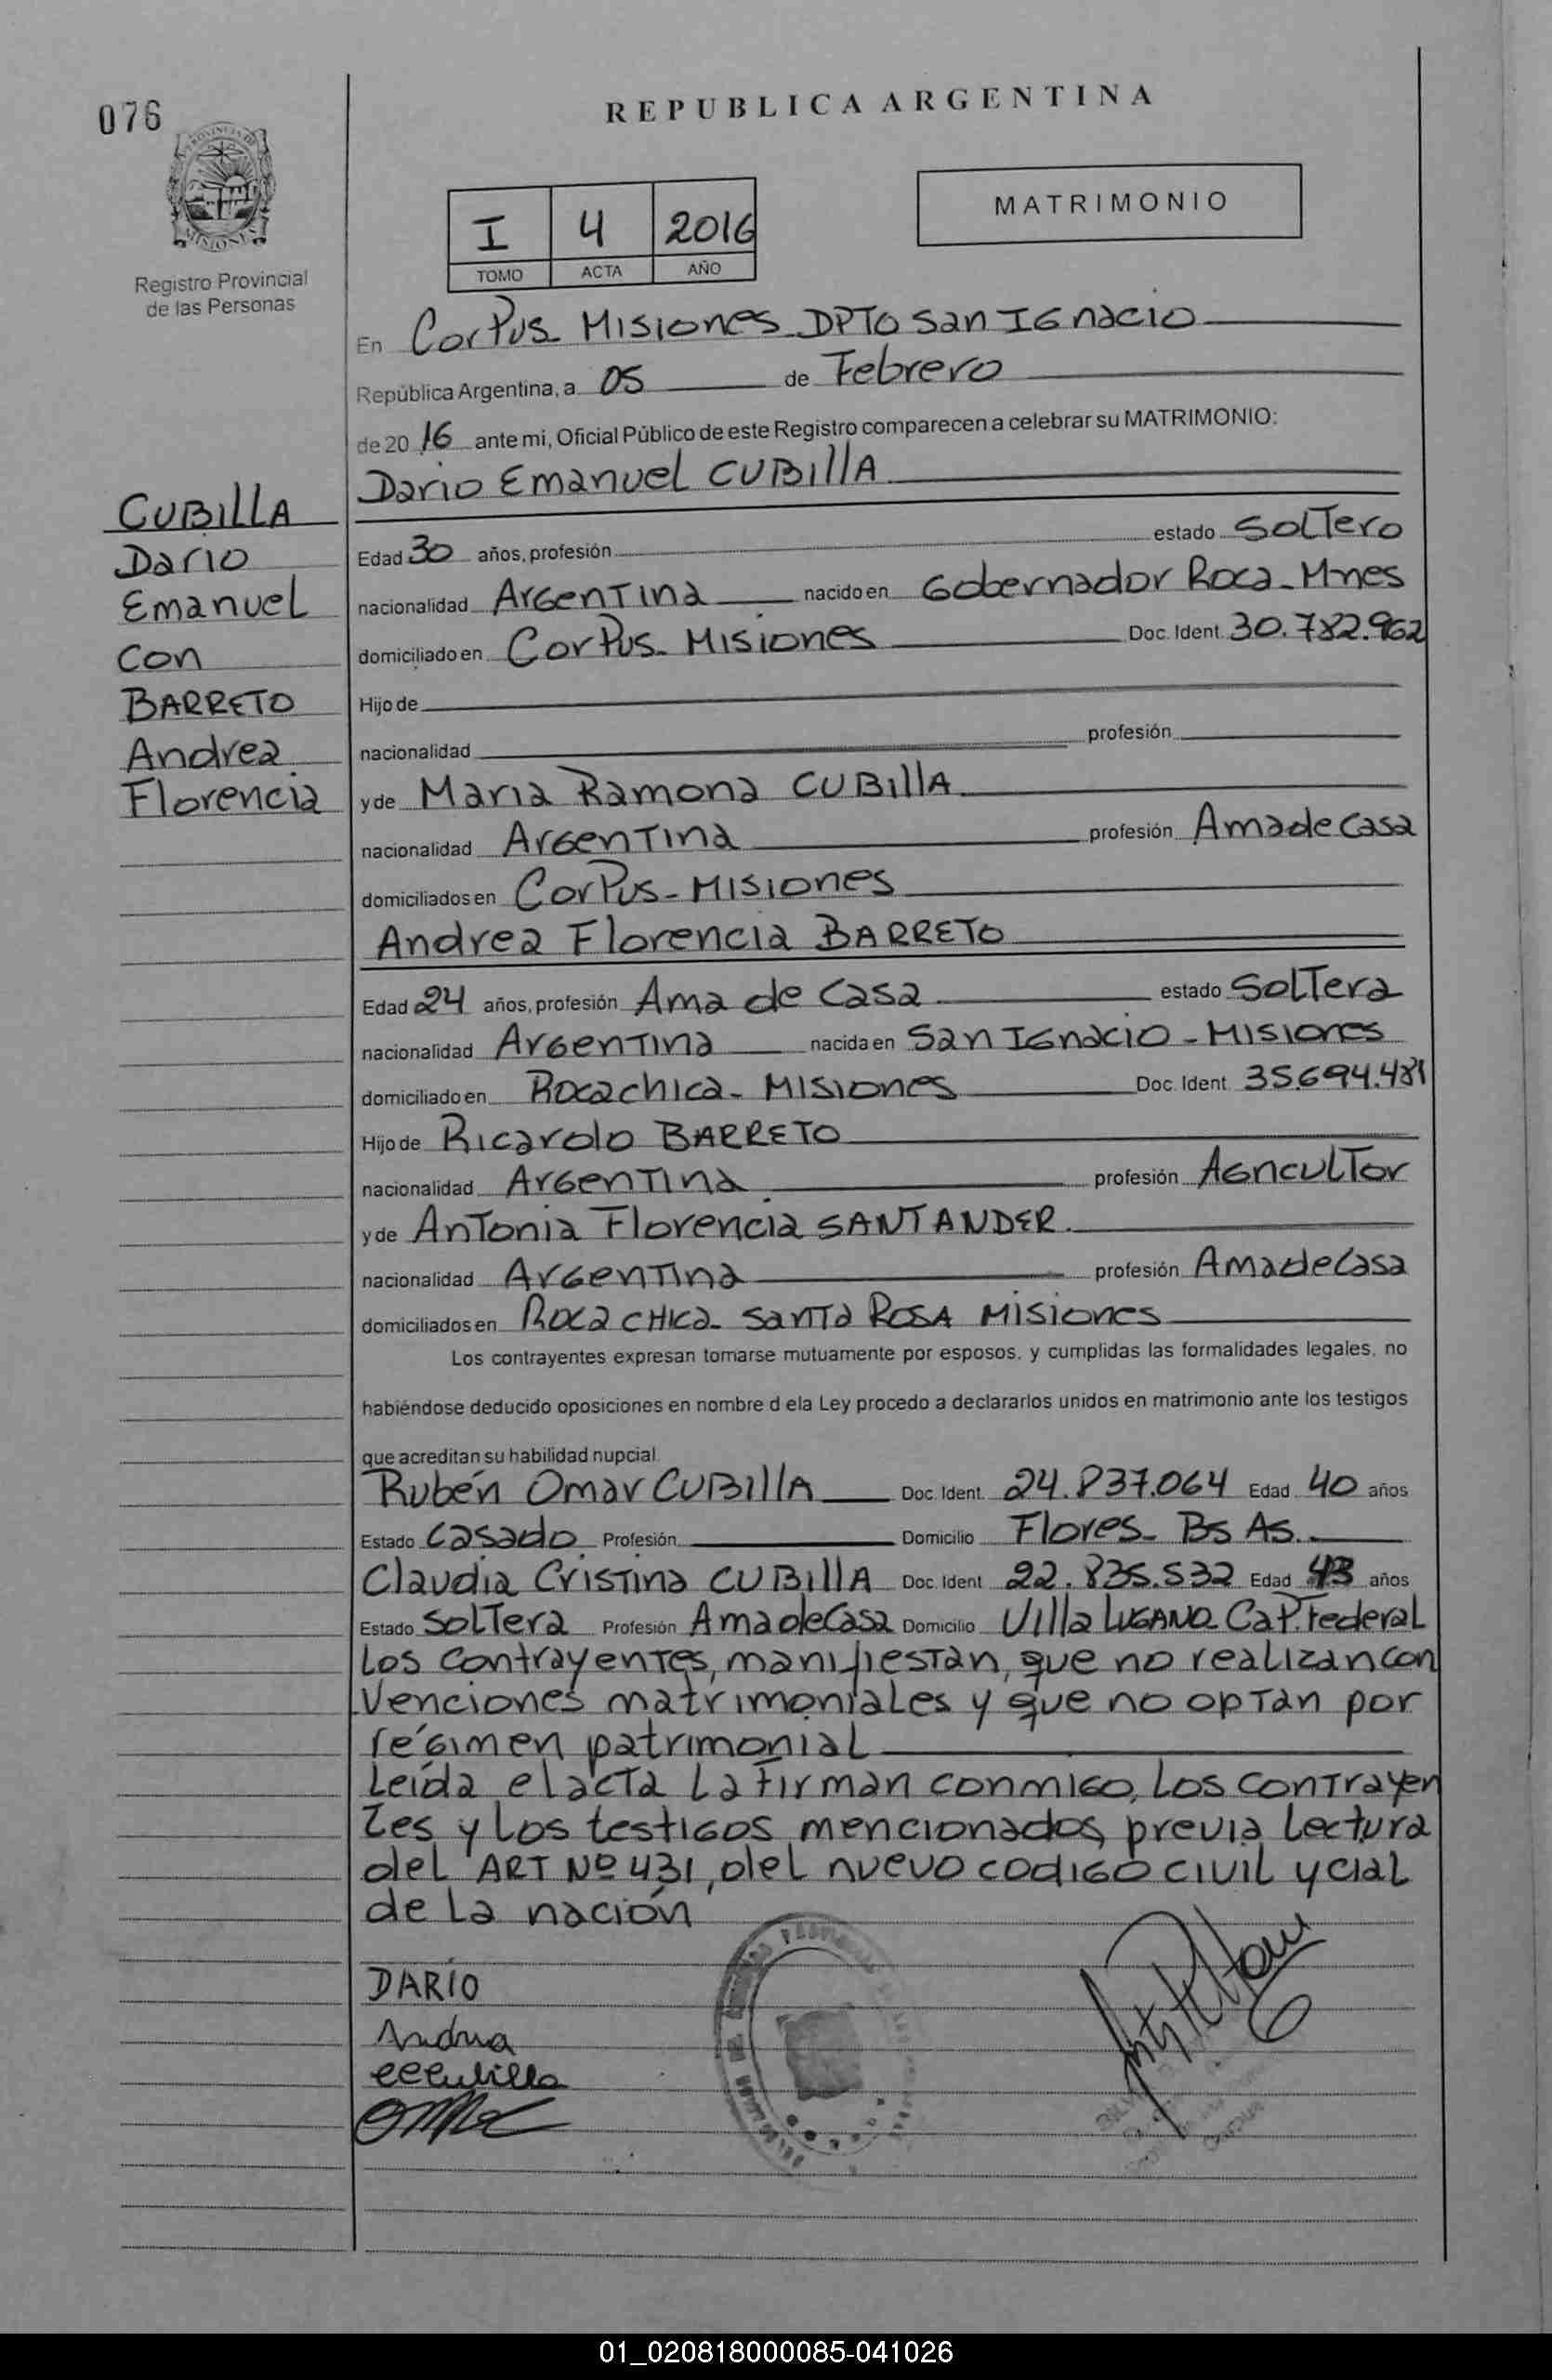 076
REPUBLICA ARGENTINA
MATRIMONIO
I 4 2016
TOMO ACTA AÑO
Registro Provincial
de las Personas
En Corpus Misiones DPTO San Ignacio
República Argentina, a 05 de Febrero
de 20 16 ante mi, Oficial Público de este Registro comparecen a celebrar su MATRIMONIO:
Dario Emanuel CUBIllA
CUBILLA
Dario
Emanuel
con
BARRETO
Andrea
Florencia
Edad 30 años, profesión estado Soltero
nacionalidad Argentina nacido en Gobernador Roca - Mnes
domiciliado en Corpus - Misiones Doc. Ident. 30.782.962
Hijo de
nacionalidad profesión
y de Maria Ramona CUBIllA
nacionalidad Argentina profesión Ama de casa
domiciliados en Corpus - Misiones
Andrea Florencia BARRETO
Edad 24 años, profesión Ama de casa estado Soltera
nacionalidad Argentina nacida en San Ignacio - Misiones
domiciliado en Roca chica - Misiones Doc. Ident. 35.694.481
Hijo de Ricardo BARRETO
nacionalidad Argentina profesión Agricultor
y de Antonia Florencia SANTANDER
nacionalidad Argentina profesión Ama de Casa
domiciliados en Roca CHica - Santa ROSA Misiones
Los contrayentes expresan tomarse mutuamente por esposos, y cumplidas las formalidades legales, no
habiéndose deducido oposiciones en nombre d ela Ley procedo a declararlos unidos en matrimonio ante los testigos
que acreditan su habilidad nupcial.
Rubén Omar CUBIllA Doc. Ident. 24.837.064 Edad 40 años
Estado Casado Profesión Domicilio Flores - Bs As.
Claudia Cristina CUBIllA Doc. Ident. 22.835.532 Edad 43 años
Estado Soltera Profesión Ama de Casa Domicilio Villa LUGANO Cap. Federal
Los contrayentes, manifiestan, que no realizan con
venciones matrimoniales y que no optan por
régimen patrimonial
Leída el acta la firman conmigo, los contrayen
tes y los testigos mencionados, previa lectura
del ART Nº 431, del nuevo codigo civil y cial
de la nación
DARIO
Andrea
CCCubilla
01_020818000085-041026